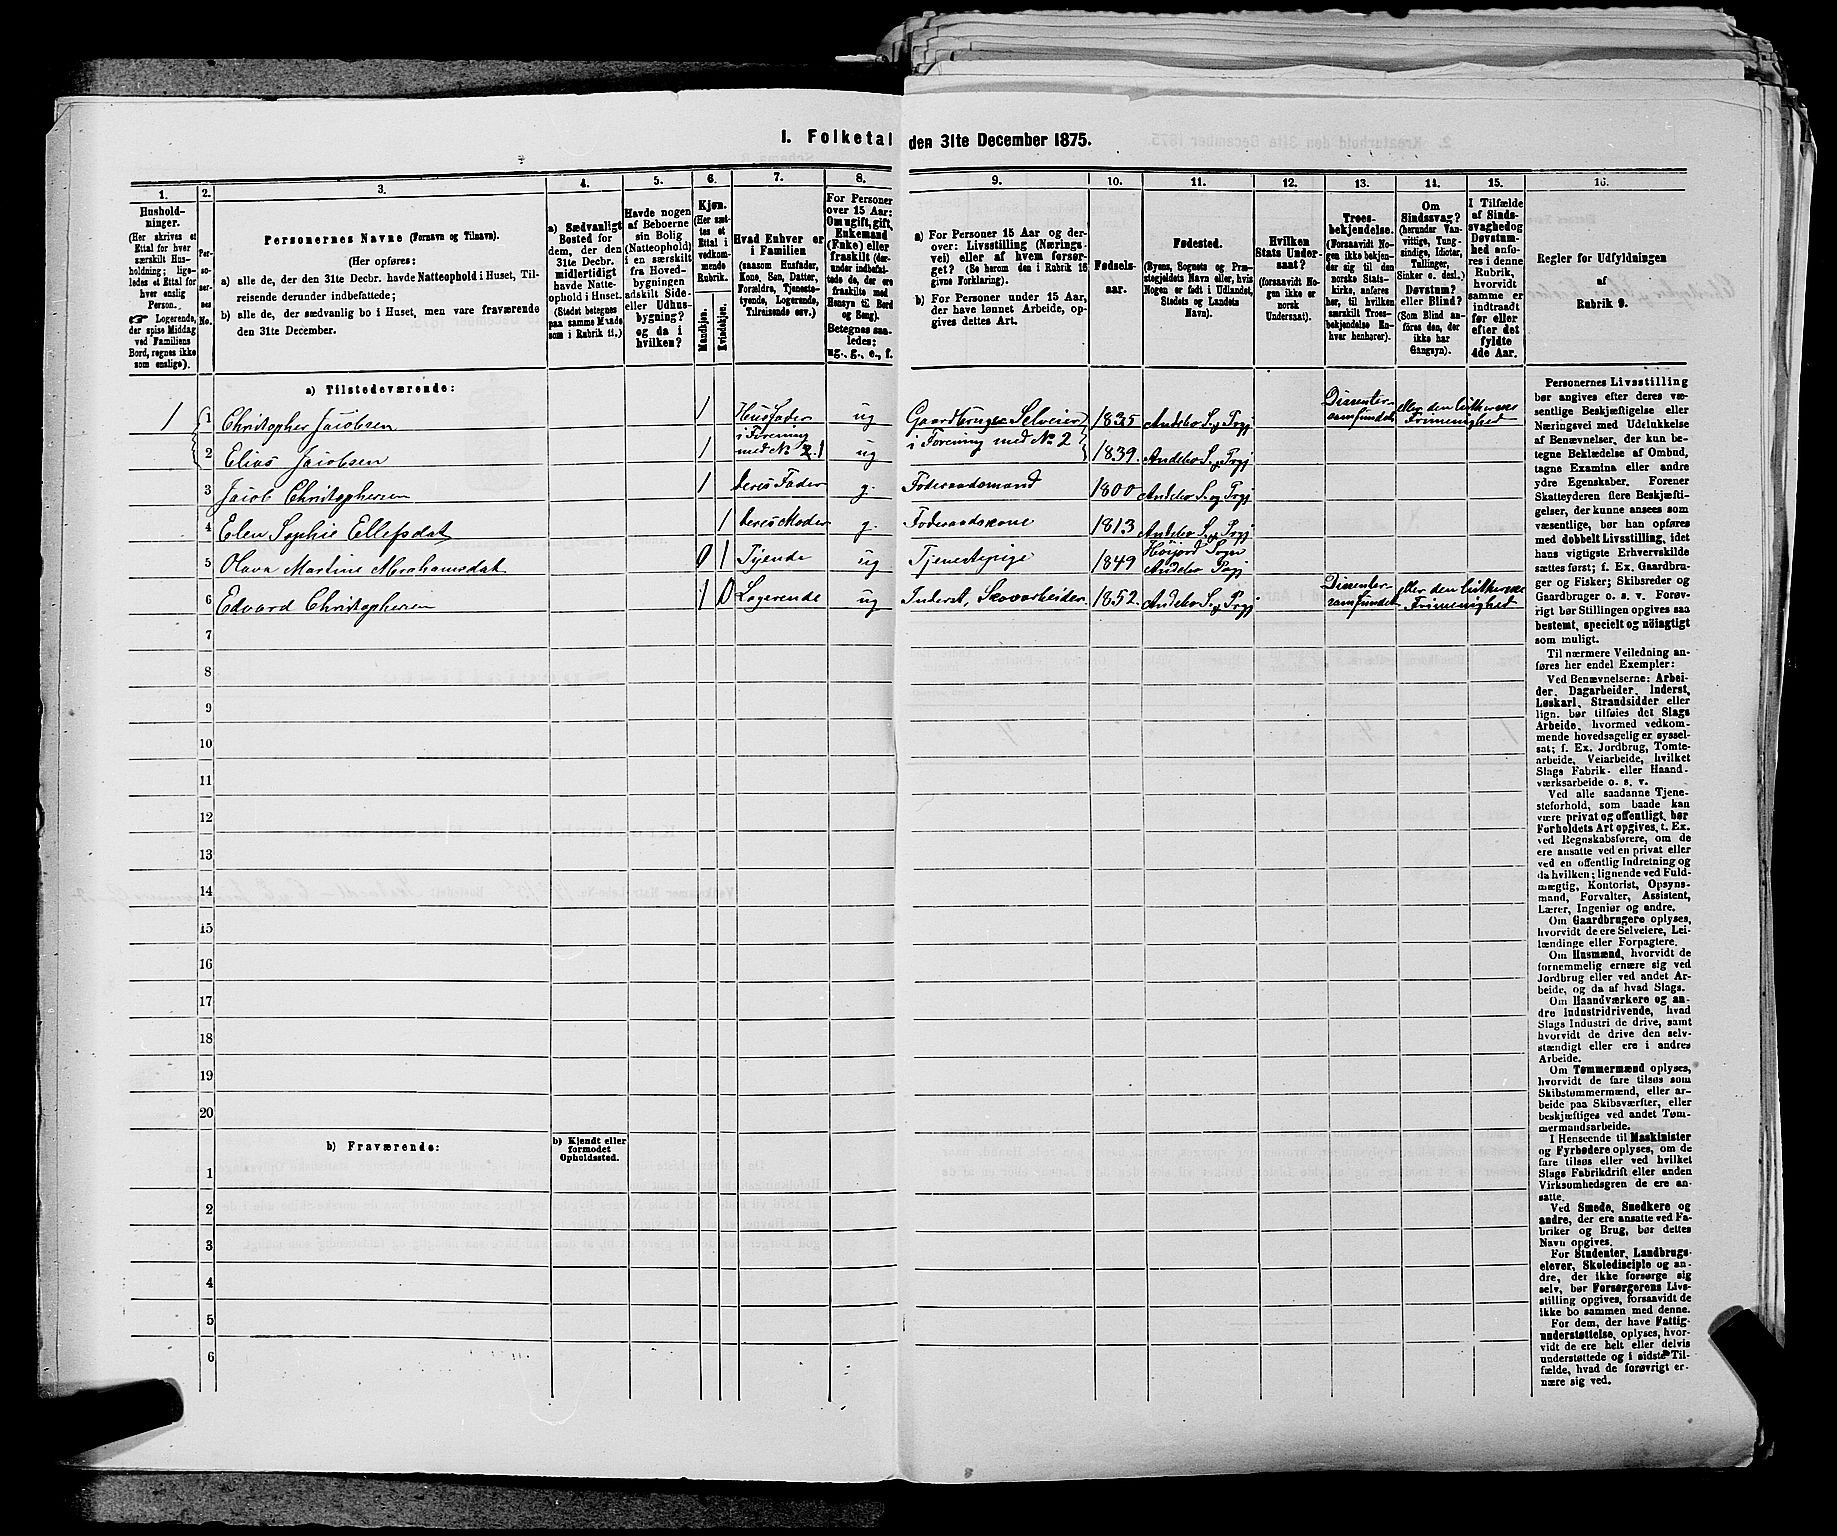 I. Folketal den 31te December 1875.
1. 2. 3. 4. 5. 6. 7. 8. 9. 10. 11. 12. 13. 14. 15. 16.
Husholdninger.
(Her skrives et
Ettal for hver
særskilt Husholdning; ligeledes
et Ettal for
hver enslig
Person.
☞ Logerende,
der spise Middag
ved Familiens
Bord, regnes ikke
som enslige).
Personernes No.
Personernes Navne (Fornavn og Tilnavn).
(Her opføres:
a) alle de, der den 31te Decbr. havde Natteophold i Huset, Tilreisende
derunder indbefattede;
b) alle de, der sædvanlig bo i Huset, men vare fraværende
den 31te December.
a) Sædvanligt
Bosted for
dem, der den
31te Decbr.
midlertidigt
havde Natteophold
i Huset.
(Stedet betegnes
paa samme Maade
som i Rubrik 11.)
Havde nogen
af Beboerne
sin Bolig
(Natteophold)
i en særskilt
fra Hovedbygningen
adskilt Sideeller
Udhusbygning?
og da i
hvilken?
Kjøn.
(Her sættes
et
Ettal i
vedkommende
Rubrik.
Mandkjøn.
Kvindekjøn.
Hvad Enhver er
i Familien
(saasom Husfader,
Kone, Søn, Datter,
Forældre, Tjenestetyende,
Logerende,
Tilreisende osv.)
For Personer
over 15 Aar:
Om ugift, gift,
Enkemand
(Enke) eller
fraskilt (derunder
indbefattede
de, der ere
fraskilte med
Hensyn til Bord
og Seng).
Betegnes saaledes:
ug., g., e., f.
a) For Personer 15 Aar og derover:
Livsstilling (Næringsvei)
eller af hvem forsørget?
(Se herom den i Rubrik 16
givne Forklaring).
b) For Personer under 15 Aar,
der have lønnet Arbeide, opgives
dettes Art.
Fødselsaar.
Fødested.
(Byens, Sognets og Præstegjeldets
Navn eller, hvis
Nogen er født i Udlandet,
Stedets og Landets
Navn).
Hvilken
Stats Undersaat?
(forsaavidt Nogen
ikke er
norsk
Undersaat).
Troesbekjendelse.
(Forsaavidt Nogen
ikke bekjender
sig til den
norske Statskirke,
anføres
her, til hvilken
særskilt Troesbekjendelse
Enhver
henhører).
Om
Sindssvag?
(herunder Vanvittige,
Tungsindige,
Idioter,
Tullinger,
Sinker o. desl.)
Døvstum?
eller Blind?
(Som Blind anføres
den, der
ikke har
Gangsyn).
I Tilfælde
af Sindssvaghed
og
Døvstumhed
anføres
i denne
Rubrik,
hvorvidt
samme er
indtraadt
før eller
efter det
fyldte
4de Aar.
Regler for Udfyldningen
af
Rubrik 9.
a) Tilstedeværende:
1 1 Christopher Jacobsen 1 Husfader ug Gaardbruger Selveier 1835 Andebo S. og Prgj Dissentersamfundet eller den lutherske Frimenighed
2 Elias Jacobsen 1 i Forening med No 1 ug i Forening med No 2 1839. Andebo S. og Prgj
3 Jacob Christophersen 1 deres Fader g. Føderaadsmand 1800 Andebo S. og Prgj
4 Elen Sophie Ellefsdat 1 deres Moder g. Føderaadskone 1813 Andebo S. og Prgj
5 Olava Martine Abrahamsdat 0 1 Tyende ug Tjenestepige 1849 Høijord Sogn Andebo Pgj
6 Edvard Christophersen 1 0 Logerende ug Inderst, Skovarbeider 1852. Andebo S. og Prgj Dissentersamfundet eller den lutherske Frimenighed
7
8
9
10
11
12
13
14
15
16
17
18
19
20
b) Fraværende:
b) Kjendt eller
formodet
Opholdssted.
1
2
3
4
5
6
Personernes Livsstilling
bør angives efter deres væsentlige
Beskjæftigelse eller
Næringsvei med Udelukkelse
af Benævnelser, der kun betegne
Beklædelse af Ombud,
tagne Examina eller andre
ydre Egenskaber. Forener
Skatteyderen flere Beskjæftigelser,
der kunne ansees som
væsentlige, bør han opføres
med dobbelt Livsstilling, idet
hans vigtigste Erhvervskilde
sættes først; f. Ex. Gaardbruger
og Fisker; Skibsreder og
Gaardbruger o. s. v. Forøvrigt
bør Stillingen opgives saa
bestemt, specielt og nöiagtigt
som muligt.
Til nærmere Veiledning anføres
her endel Exempler:
Ved Benævnelserne: Arbeider,
Dagarbeider, Inderst,
Løskarl, Strandsidder eller
lign. bør tilføies det Slags
Arbeide, hvormed vedkommende
hovedsagelig er sysselsat;
f. Ex. Jordbrug, Tomtearbeide,
Veiarbeide, hvilket
Slags Fabrik- eller Haandværksarbeide
o. s. v.
Ved alle saadanne Tjenesteforhold,
som baade kan
være privat og offentligt, bør
Forholdets Art opgives, t. Ex.
ved Regnskabsførere, om de
ere ansatte ved en privat eller
ved en offentlig Indretning og
da hvilken; lignende ved Fuldmægtig,
Kontorist, Opsynsmand,
Forvalter, Assistent,
Lærer, Ingeniør og andre.
Om Gaardbrugere oplyses,
hvorvidt de ere Selveiere, Leilændinge
eller Forpagtere.
Om Husmænd, hvorvidt de
fornemmelig ernære sig ved
Jordbrug eller ved andet Arbeide,
og da af hvad Slags.
Om Haandværkere og andre
Industridrivende, hvad
Slags Industri de drive, samt
hvorvidt de drive den selvstændigt
eller ere i andres
Arbeide.
Om Tømmermænd oplyses,
hvorvidt de fare tilsøs som
Skibstømmermænd, eller arbeide
paa Skibsværfter, eller
beskjæftiges ved andet Tømmermandsarbeide.
I Henseende til Maskinister
og Fyrbødere oplyses, om de
fare tilsøs eller ved hvilket
Slags Fabrikdrift eller anden
Virksomhedsgren de ere ansatte.
Ved Smede, Snedkere og
andre, der ere ansatte ved Fabriker
og Brug, bør dettes
Navn opgives.
For Studenter, Landbrugselever,
Skoledisciple og andre,
der ikke forsørge sig
selv, bør Forsørgerens Livsstilling
opgives, forsaavidt de
ikke bo sammen med denne.
For dem, der have Fattigunderstøttelse,
oplyses, hvorvidt
de ere helt eller delvis
understøttede og i sidste Tilfælde,
hvad de forøvrigt ernære
sig ved.